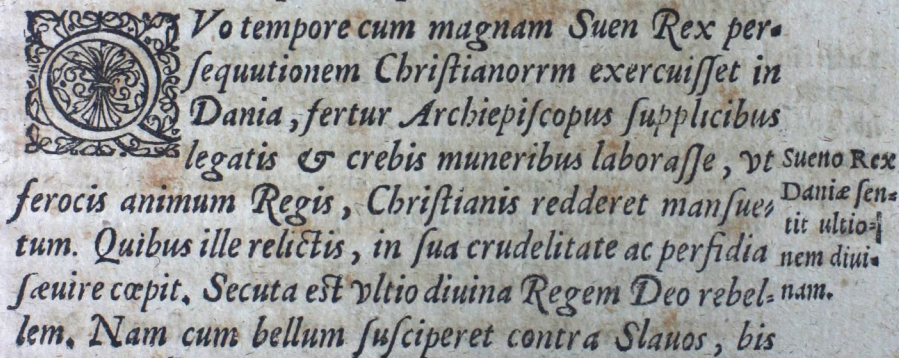 QVo tempore cum magnam Suen Rex per-
ſequutionem Chriſtianorrm exercuiſſet in
Dania, fertur Archiepiſcopus ſupplicibus
legatis & crebis muneribus laboraſſe, vt
ferocis animum Regis, Chriſtianis redderet manſue-
tum. Quibus ille relictis, in ſua crudelitate ac perfidia
ſæuire cœpit. Secuta eſt vltio diuina Regem Deo rebel-
lem. Nam cum bellum ſuſciperet contra Slauos, bis
Sueno Rex
Daniæ ſen-
tit ultio-
nem diui-
nam.